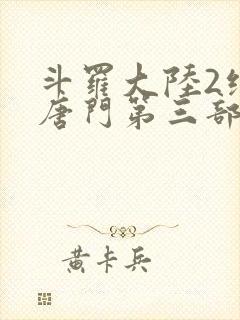 斗羅大陸2
唐門第三部
黃卡兵